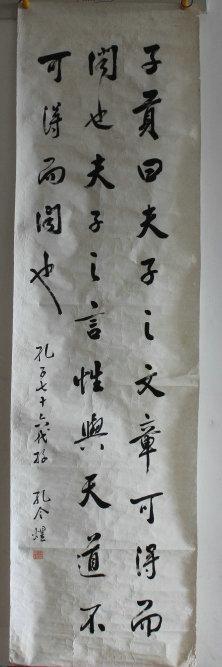 子貢曰夫子之文章可得而
聞也夫子之言性與天道不
可得而聞也
孔子七十六代孫 孔令煜